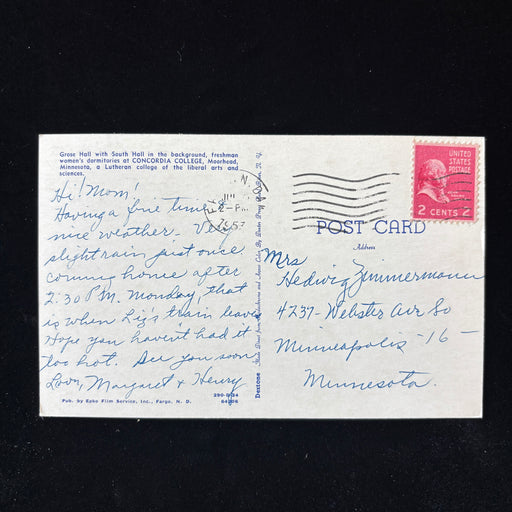 Grose Hall with South Hall in the background, freshman
women's dormitories at CONCORDIA COLLEGE, Moorhead,
Minnesota, a Lutheran college of the liberal arts and
sciences.
Hi! Mom!
Having a fine time &
nice weather. Very
slight rain just once
coming home after
2:30 P.M. Monday, that
is when Liz's train leaves
Hope you haven't had it
too hot. See you soon
Love, Margaret & Henry
Pub. by Epko Film Service, Inc., Fargo, N. D.
Dextone
UNITED
STATES
POSTAGE
2 CENTS 2
POST CARD
Address
Mrs
Hedwig Zimmermann
4237- Webster Ave So
Minneapolis -16-
Minnesota.